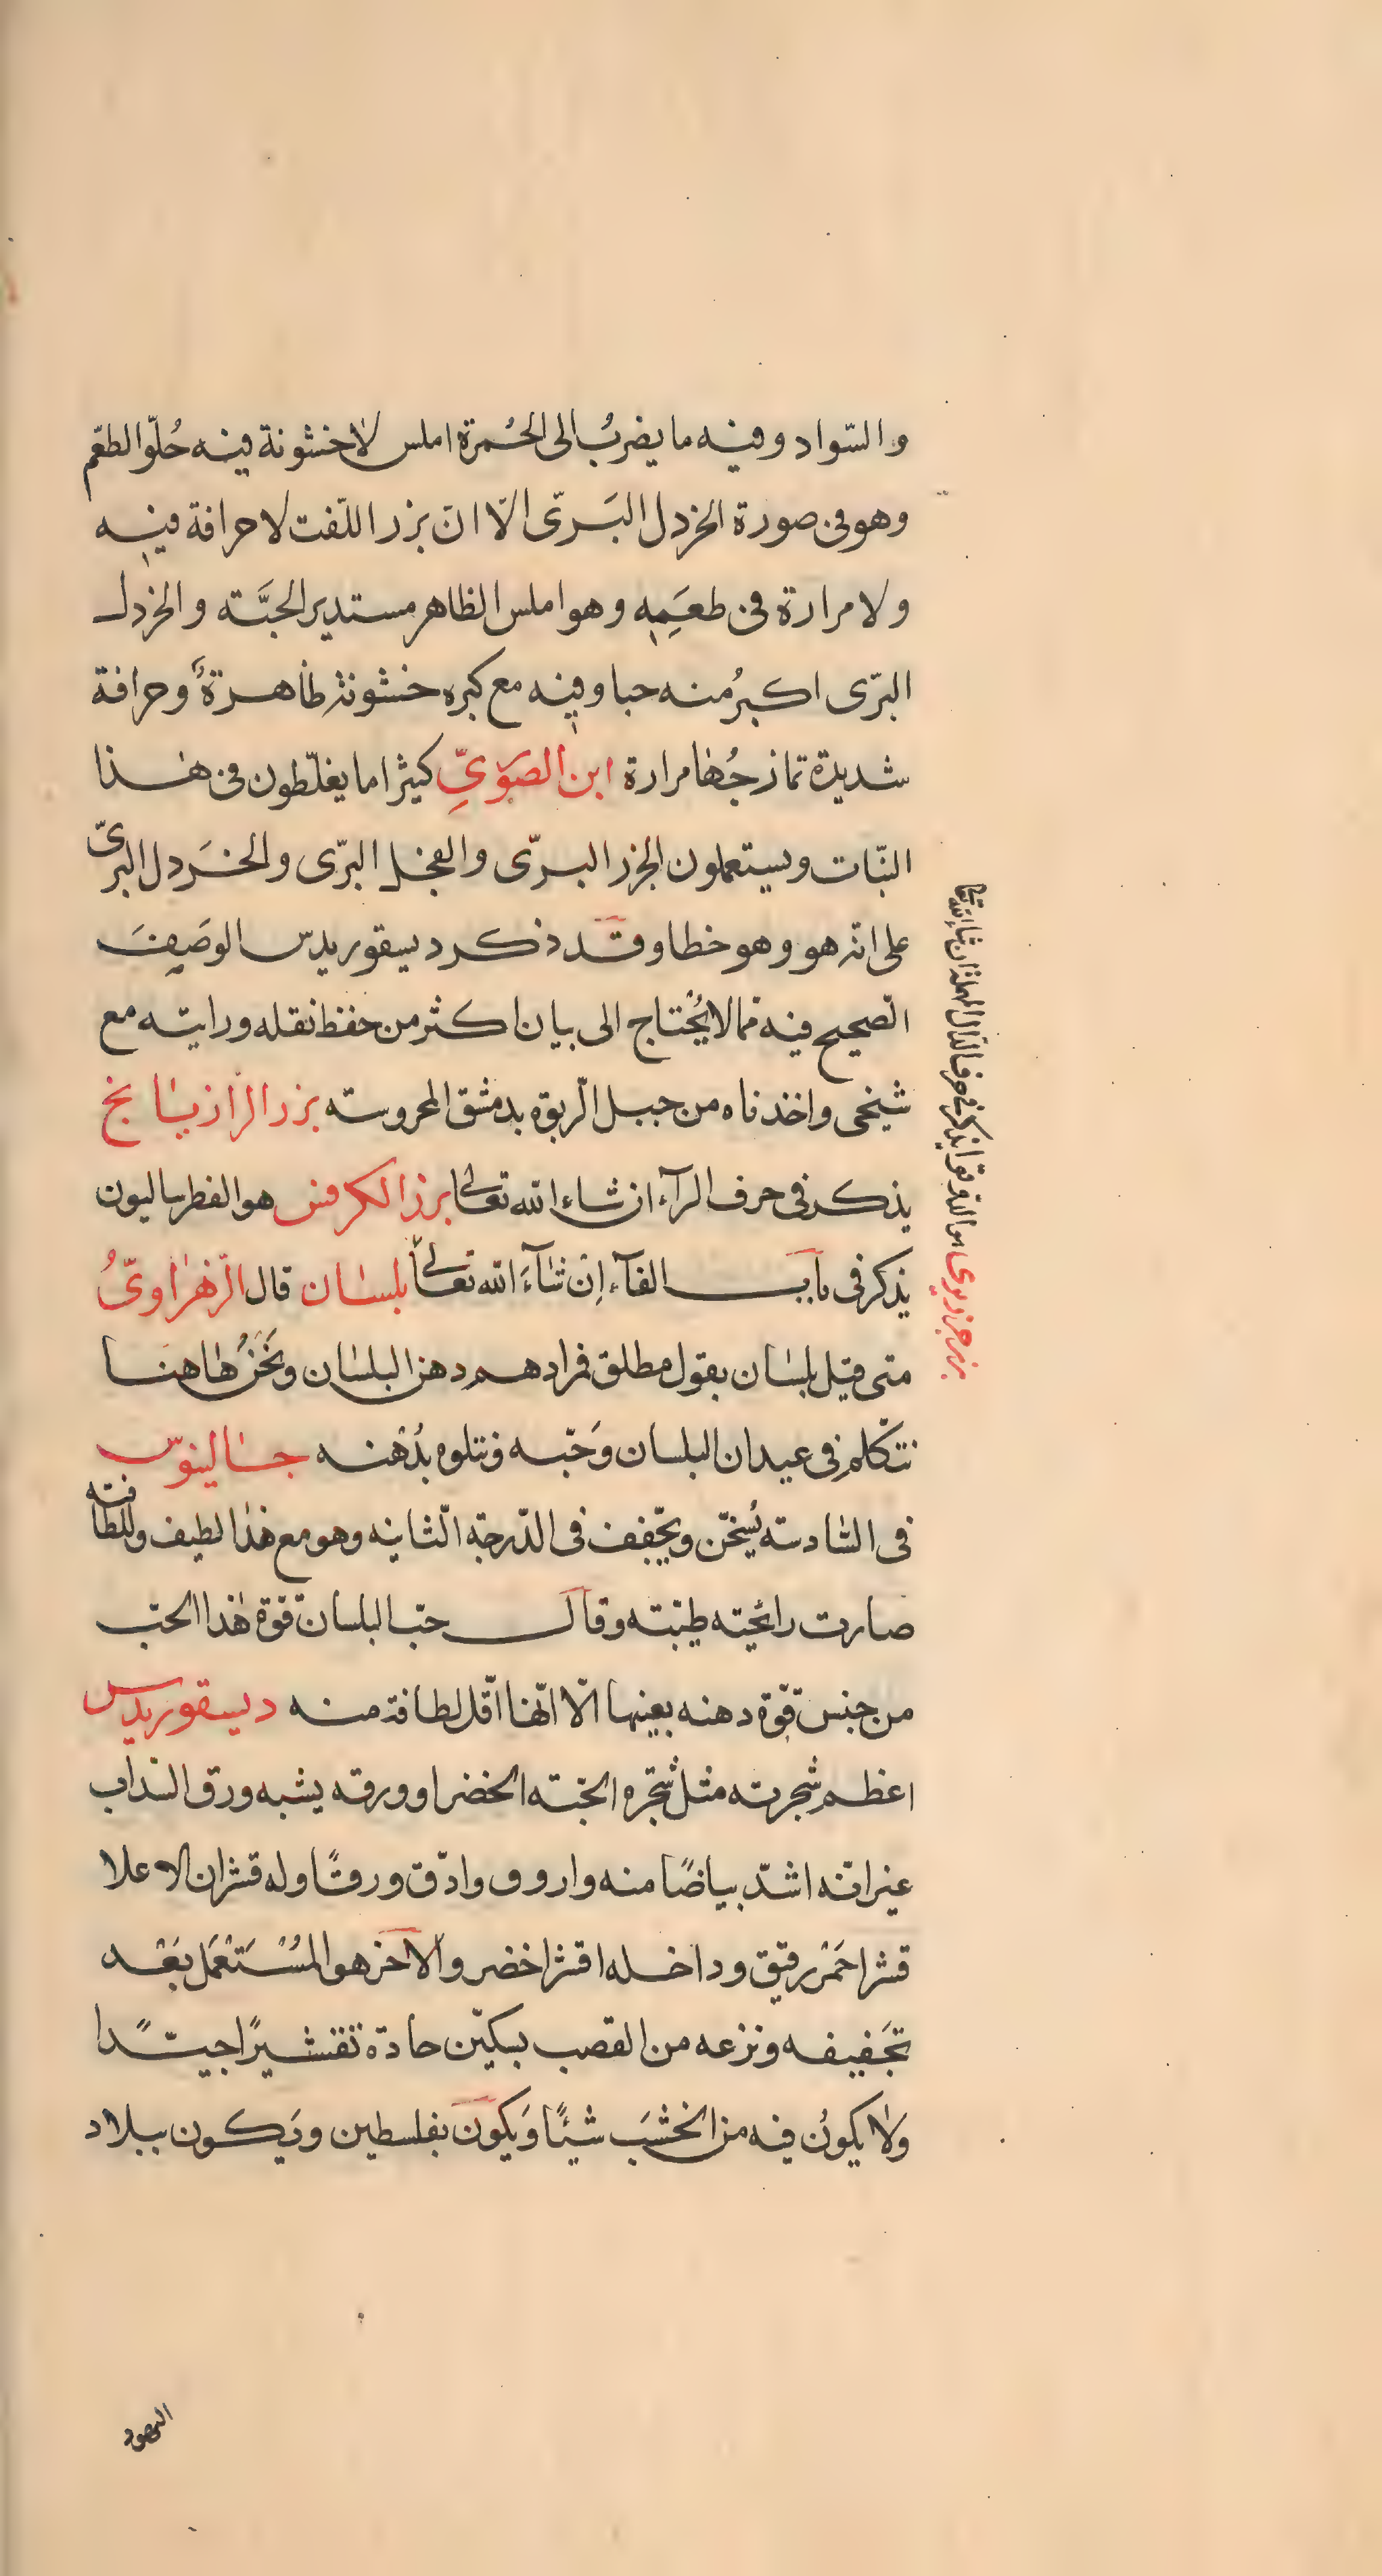 والسّواد وفيه ما يضربُ الى الحُمرة املس لاخشونة فيه حُلوّ الطعّم
وهو فى صورة الخزدل البَرىّ الّا انّ بزر اللّفت لا حرافة فيه
ولا مرارة فى طعَمِه وهو املس الظاهر مستدير الحبَّته والخزدل
البرّى اكبرُ منه حبا وفيه مع كبره خشونة ظاهرةٌ وحرافة
شديدة تمازجُها مرارة ابن الصّوَرىِّ كثيرا ما يغلّطون فى هذا
النّبات ويستعملون الجزر البرّى والفجل البرّى والخَردل البرىّ
على انه هو وهو خطا وقد ذكر ديسقوريدس الوصَف
الصّحيح فيه مما لا يُحتاج الى بيان اكثر من حفظ نقله ورايته مع
شيخى واخذناه من جبل الرّبوة بدمشق المحروسته بزر الرّازيانج
يذكر فى حرف الرآء ان شاء الله تعالى بزر الكرفس هو الفطرساليون
يذكر فى باب الفآء اِن شآءَ الله تعالى بلسان قال الزّهراوىُّ
متى قيل بلسان بقول مطلق فمرادهم دهن البلسان ونَحَنُ هاهنا
نتكّلم فى عيدان البلسان وَحّبه ونتلوه بدُهنه جالينوسّ
فى السّادسته يُسخّن ويجّفف فى الدّرجة الثّانيه وهو مع هذا لطيف وللطافته
صارت رائحيته طيّبته وقال حبّ البلسان قوّة هذا الحبّ
من جنس قوّة دهنه بعينها الّا انّها اقّل لطافة منه ديسقوريدس
اعظم شجرته مثل شجّره الحبّته الخضرا وورقه يشبه ورق السّذاب
غير انّه اشدّ بياضًا منه واروق وادّق ورقًا وله قشران الاعلا
قشر احَمْر رقيق وداخله اقشر اخضر والاخر هو المُسْتَعَمل بَعْد
تجَفيفه ونزعه من القصب بسكيّن حادّة تقشيرًا جيّدًا
وَلا يكونُ فيه من الخشَب شيًا وَيكوَن بفلسطين ويَكون ببلاد
اليهود